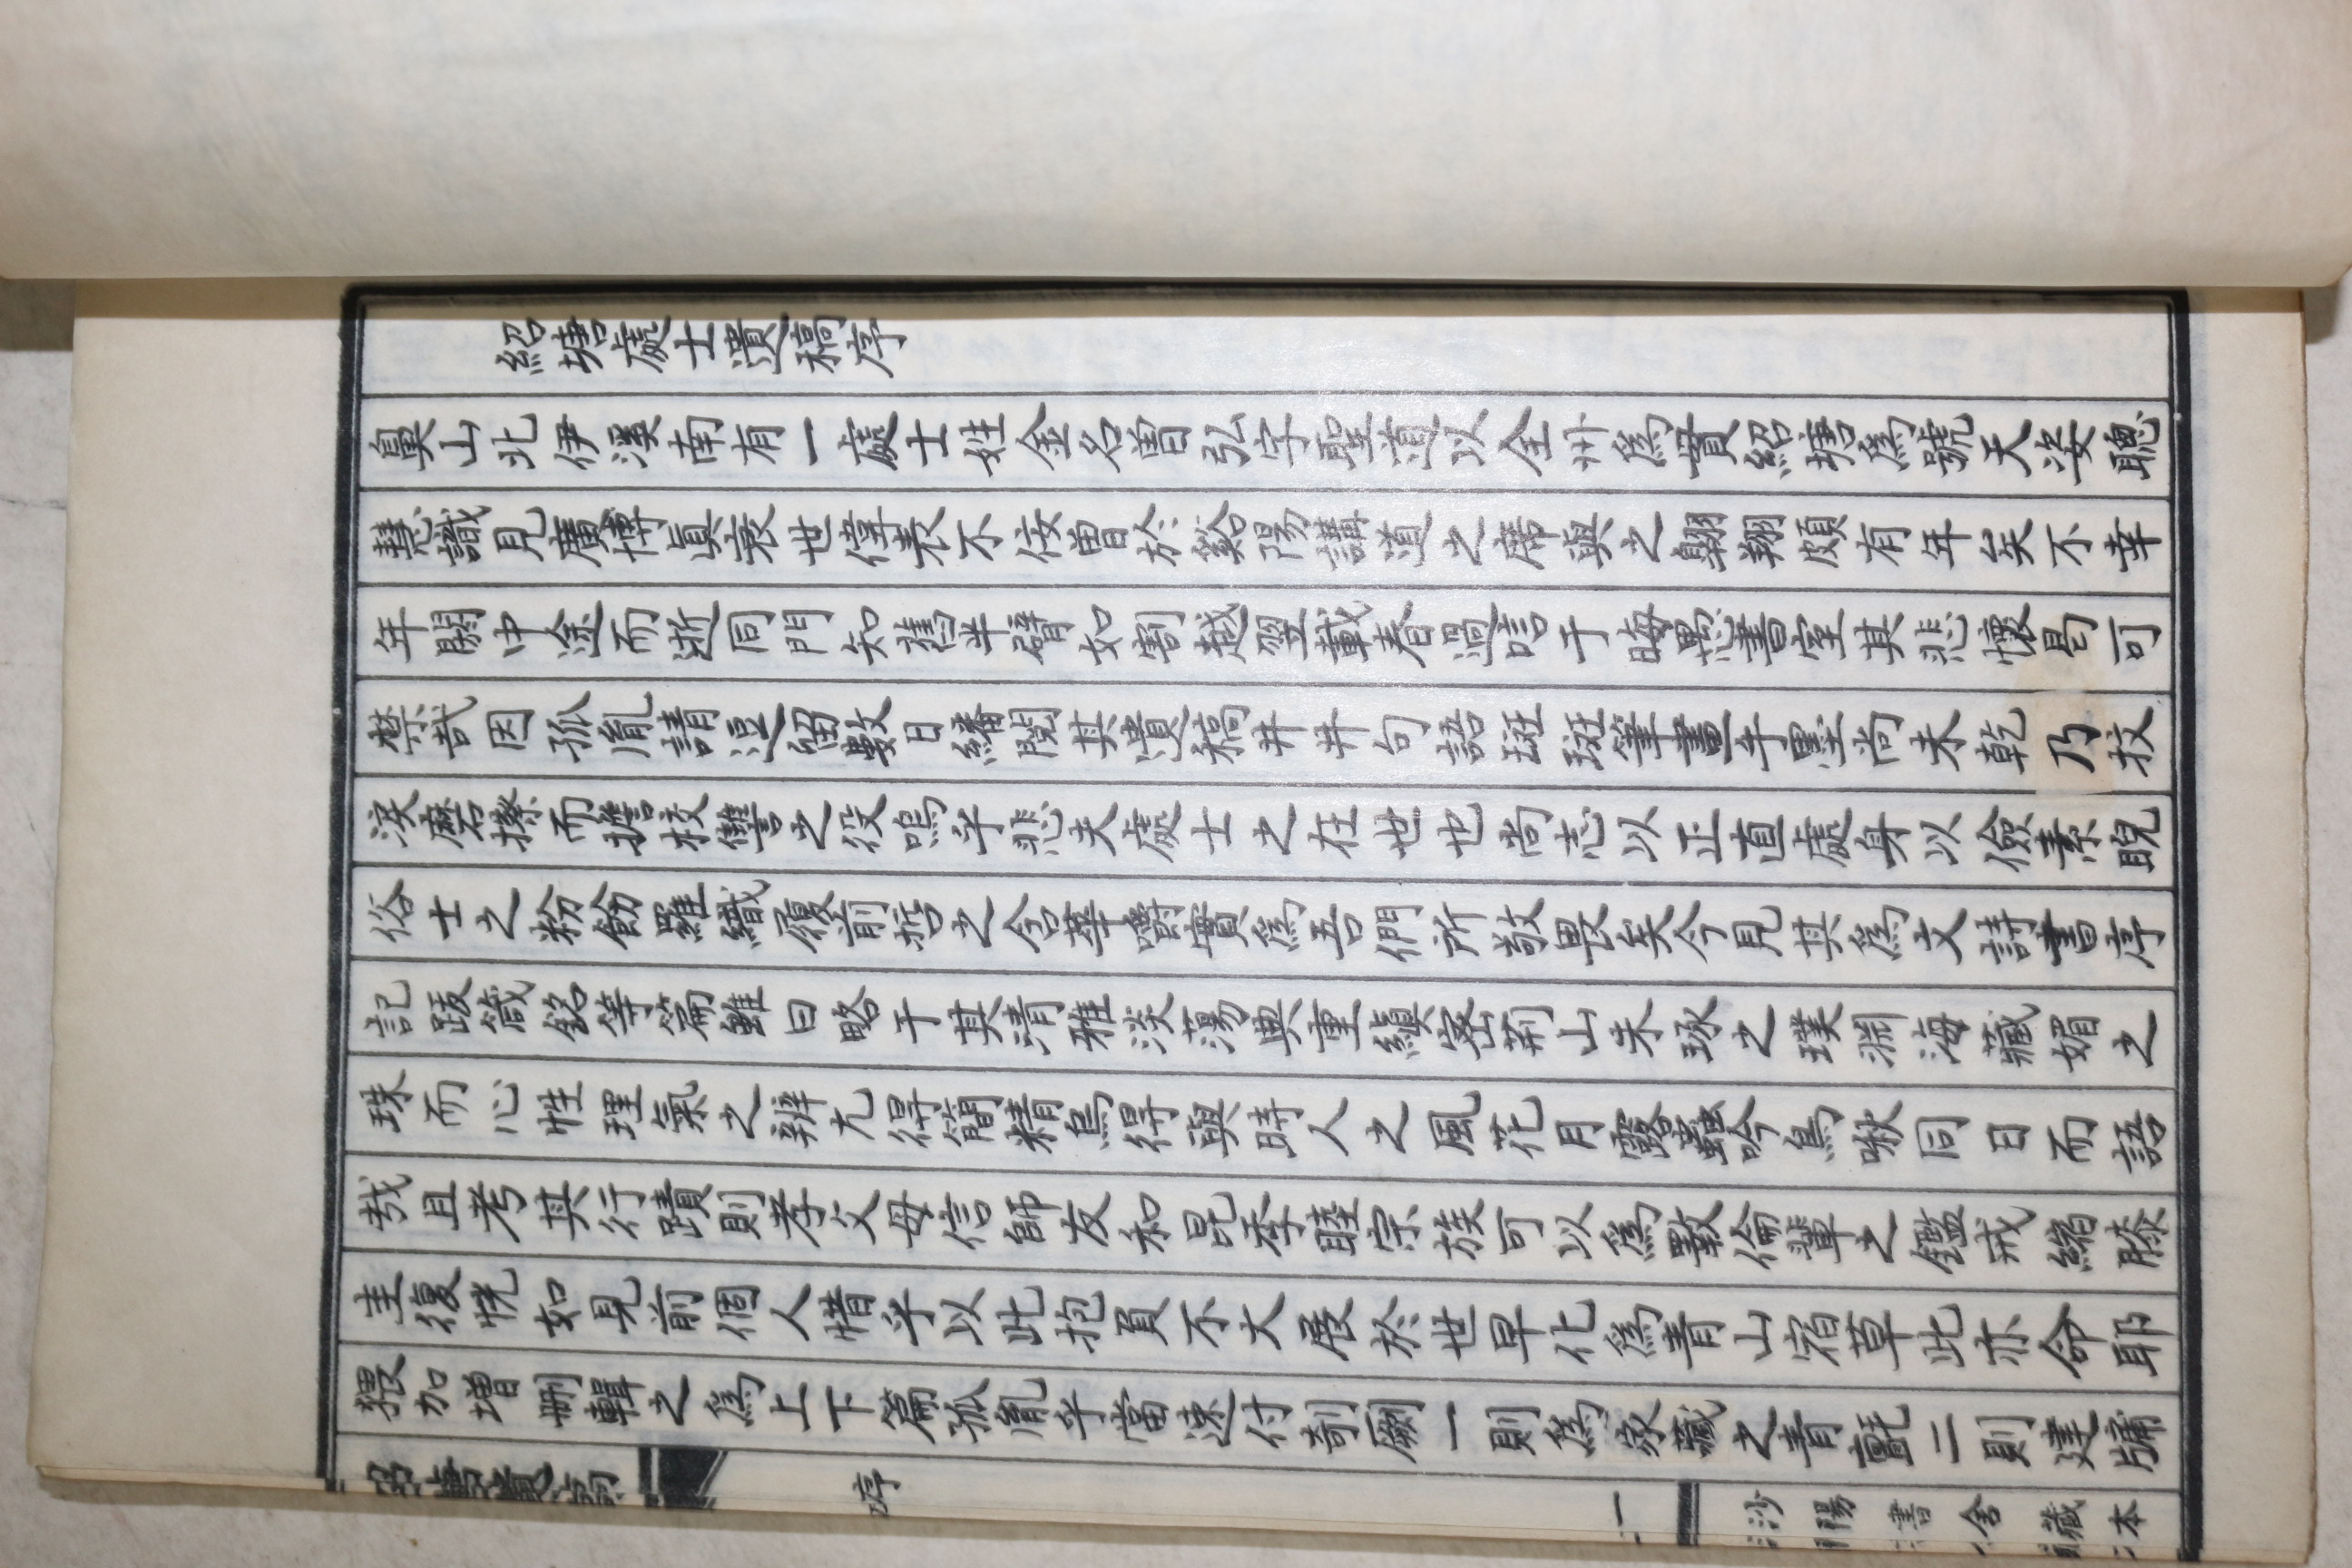 紹塘處士遺稿序
鼻山北伊溪南有一處士姓金名曾弘字聖道以全州爲貫紹塘爲號天姿聰
慧識見廣博眞衰世偉表不佞曾於谿陽講道之席與之翺翔頗有年矣不幸
年閼中途而逝同門知舊半臂如割越翌載春過唁于晦愚書室其悲懷曷可
禁哉因孤胤請逗留數日繙閱其遺稿井井句語班班筆畫手墨尚未乾乃抆
淚磨搽而擔校讐之役嗚乎悲夫處士之在世也尚志以正直處身以儉素睨
俗士之粉飾羅織復前哲之含華嚼實爲吾儕所敬畏矣今見其爲文詩書序
記跋箴銘等篇雖曰略干其清雅淡蕩典重縝密荊山未琢之璞淵海藏媚之
珠而心性理氣之辨尤得簡精烏得與時人之風花月露蛩吟鳥噭同日而語
哉且考其行蹟則孝父母信師友和昆季睦宗族可以爲斁倫輩之鑑戒緒牓
圭復恍如見前個人惜乎以此抱負不大展於世早化爲靑山宿草此亦命耶
猥加增刪輯之爲上下篇孤胤乎當速付剞劂一則爲家藏之靑氈二則建牖
紹塘遺稿
序
一
沙陽書舍藏本